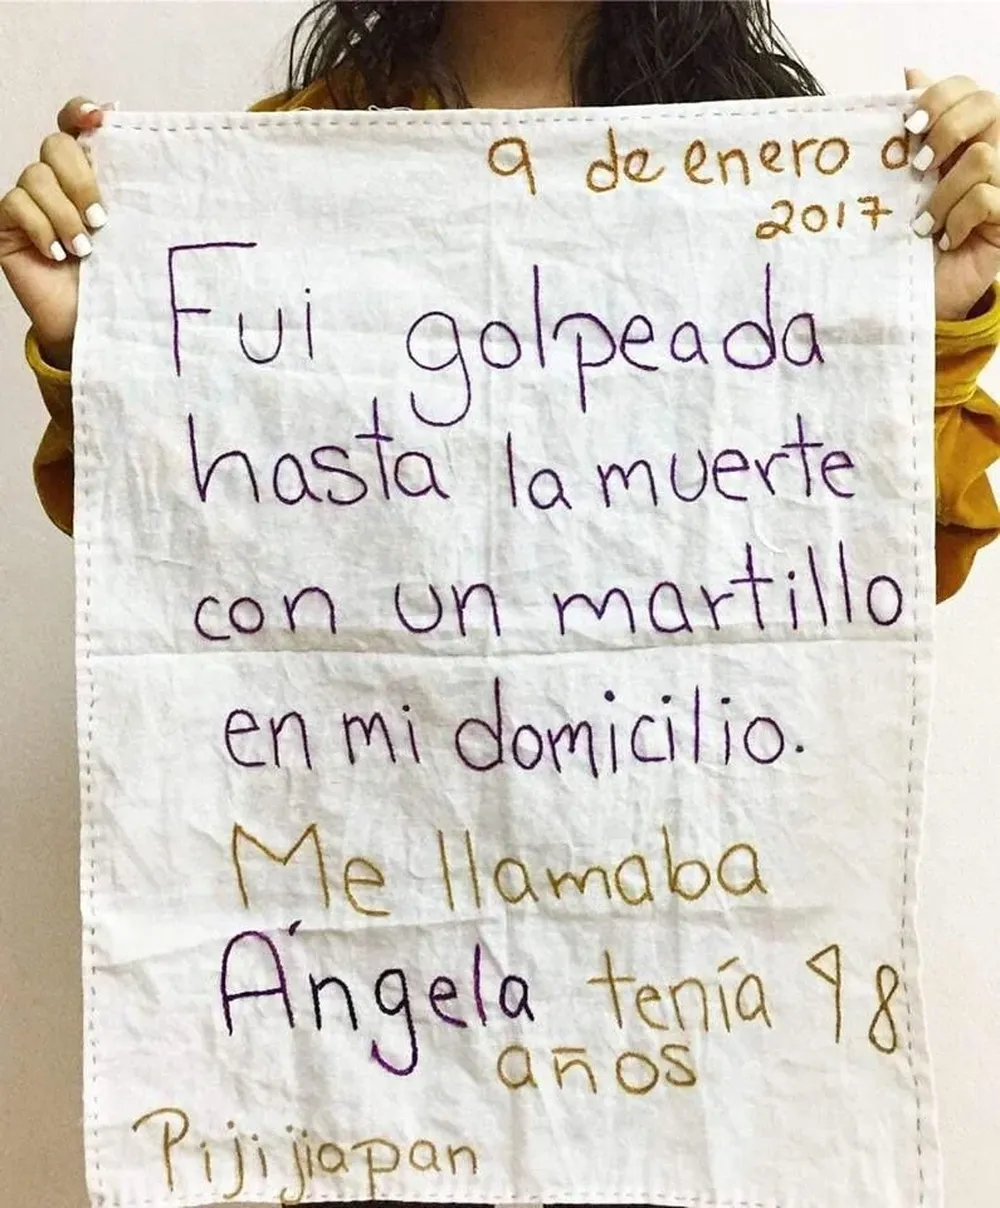 9 de enero d
2017
Fui golpeada
hasta la muerte
con un martillo
en mi domicilio.
Me llamaba
Ángela tenía 98
años
Pijijiapan